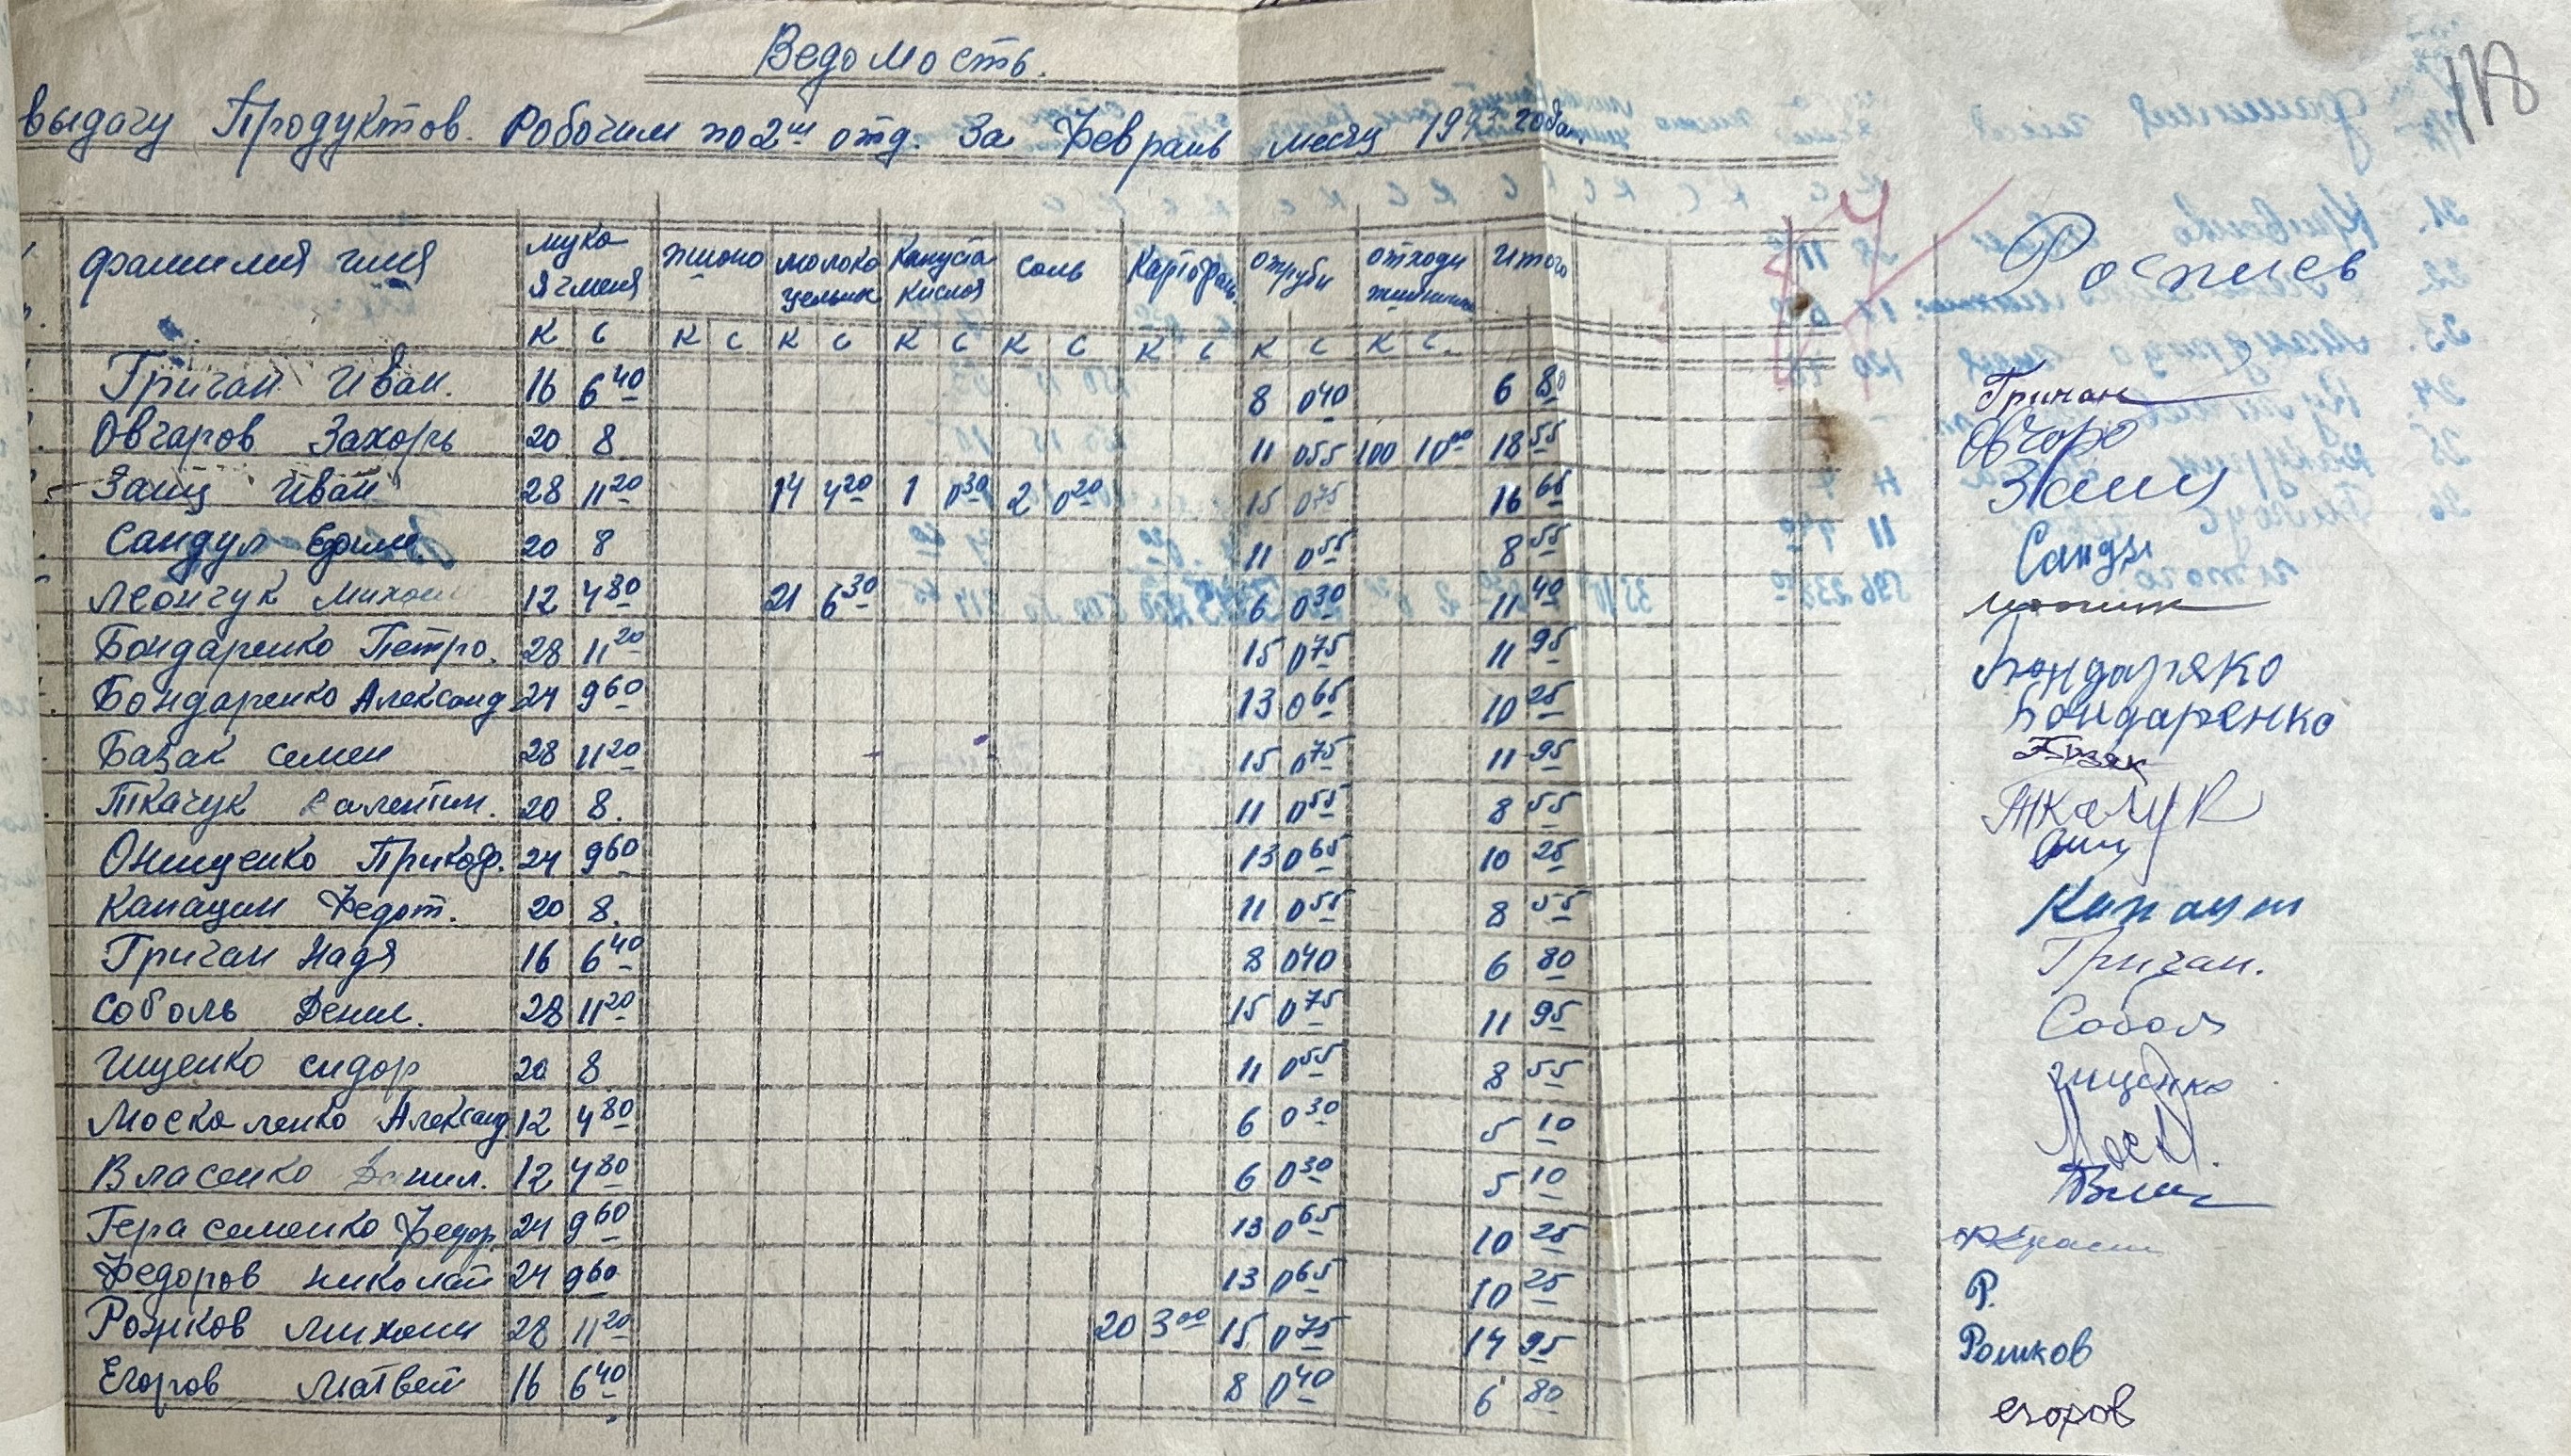 118
Ведомость.
выдачу Продуктов. Робочим по 2й отд. За Февраль месяц 1943 года.
фамилия имя мука ячменя пшоно молоко цельное Капуста кислая соль Картофель отруби отходи Итого Роспись
К С К С К С К С К С К С К С К С
Григан Иван. 16 6 40 8 0 40 6 80 Григан
Овчаров Захорь 20 8. 11 0 55 100 10 00 18 55 Овчаро
Заиц Иван 28 11 20 14 4 20 1 0 30 2 0 20 15 0 75 16 65 Заиц
Сандул Ефим. 20 8 11 0 55 8 55 Санду
Леончук Михаил 12 4 80 21 6 30 6 0 30 11 40
Бондаренко Петро. 28 11 20 15 0 75 11 95 Бондаряко
Бондаренко Александ 24 9 60 13 0 65 10 25 Бондаренко
Базак семен 28 11 20 15 0 75 11 95 Базак
Ткачук Валентин. 20 8. 11 0 55 8 55 Ткачук
Онищенко Прикоф. 24 9 60 13 0 65 10 25 Онищ
Канацин Федот. 20 8. 11 0 55 8 55
Григан Надя 16 6 40 8 0 40 6 80 Григан.
Соболь Денил. 28 11 20 15 0 75 11 95 Соболь
Ищенко сидор 20 8. 11 0 55 8 55 ищенко
Москаленко Александ 12 4 80 6 0 30 5 10 Моск.
Власенко Данил. 12 4 80 6 0 30 5 10 Влас
Герасеменко Федор. 24 9 60 13 0 65 10 25
Федоров николай 24 9 60 13 0 65 10 25 Р.
Рожков михаил 28 11 20 20 3 00 15 0 75 14 95 Рожков
Егоров Матвей 16 6 40 8 0 40 6 80 егоров